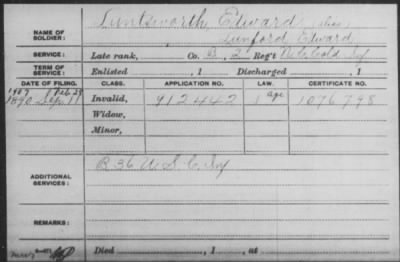 NAME OF SOLDIER: Luntsworth, Edward, (alias)
Lunford, Edward,
SERVICE: Late rank, Co. B, 2 Reg't N.C. Cold Inf
TERM OF SERVICE: Enlisted , 1 Discharged , 1
DATE OF FILING. CLASS. APPLICATION NO. LAW. CERTIFICATE NO.
1907 Feb 28 age
1890 Sep 11 Invalid, 912442 1 1076798
Widow,
Minor,
ADDITIONAL SERVICES: B 36 U S C Inf
REMARKS:
Died , 1 , at